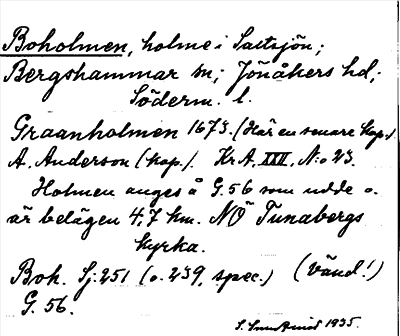 Boholmen, holme i Saltsjön;
Bergshammar sn; Jönåkers hd;
Söderm. l.
Graanholmen 1673. (Här en senare kop.)
A. Anderson (kop.). Kr A. XXII. N:o 23.
Holmen anges å G. 56 som udde o.
är belägen 4,7 km. NÖ Tunabergs
kyrka.
Boh. Sj. 251 (o. 239, spec.) (Vänd!)
G. 56.
S. 1935.